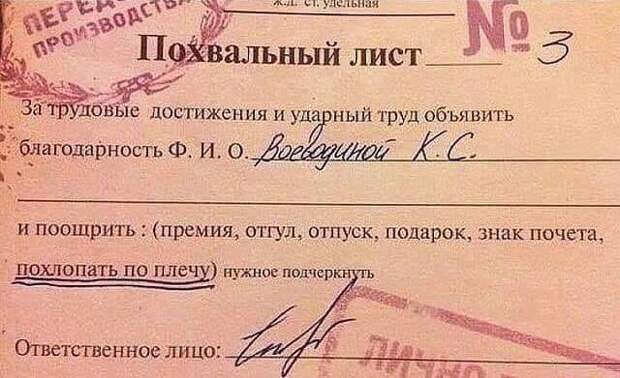 ж.д. ст. удельная
ПЕРЕДО
ПРОИЗВОДСТВА
№ 3
Похвальный лист
За трудовые достижения и ударный труд объявить
благодарность Ф. И. О. Воеводиной К. С.
и поощрить : (премия, отгул, отпуск, подарок, знак почета,
похлопать по плечу) нужное подчеркнуть
Ответственное лицо:
ЛИЧНО